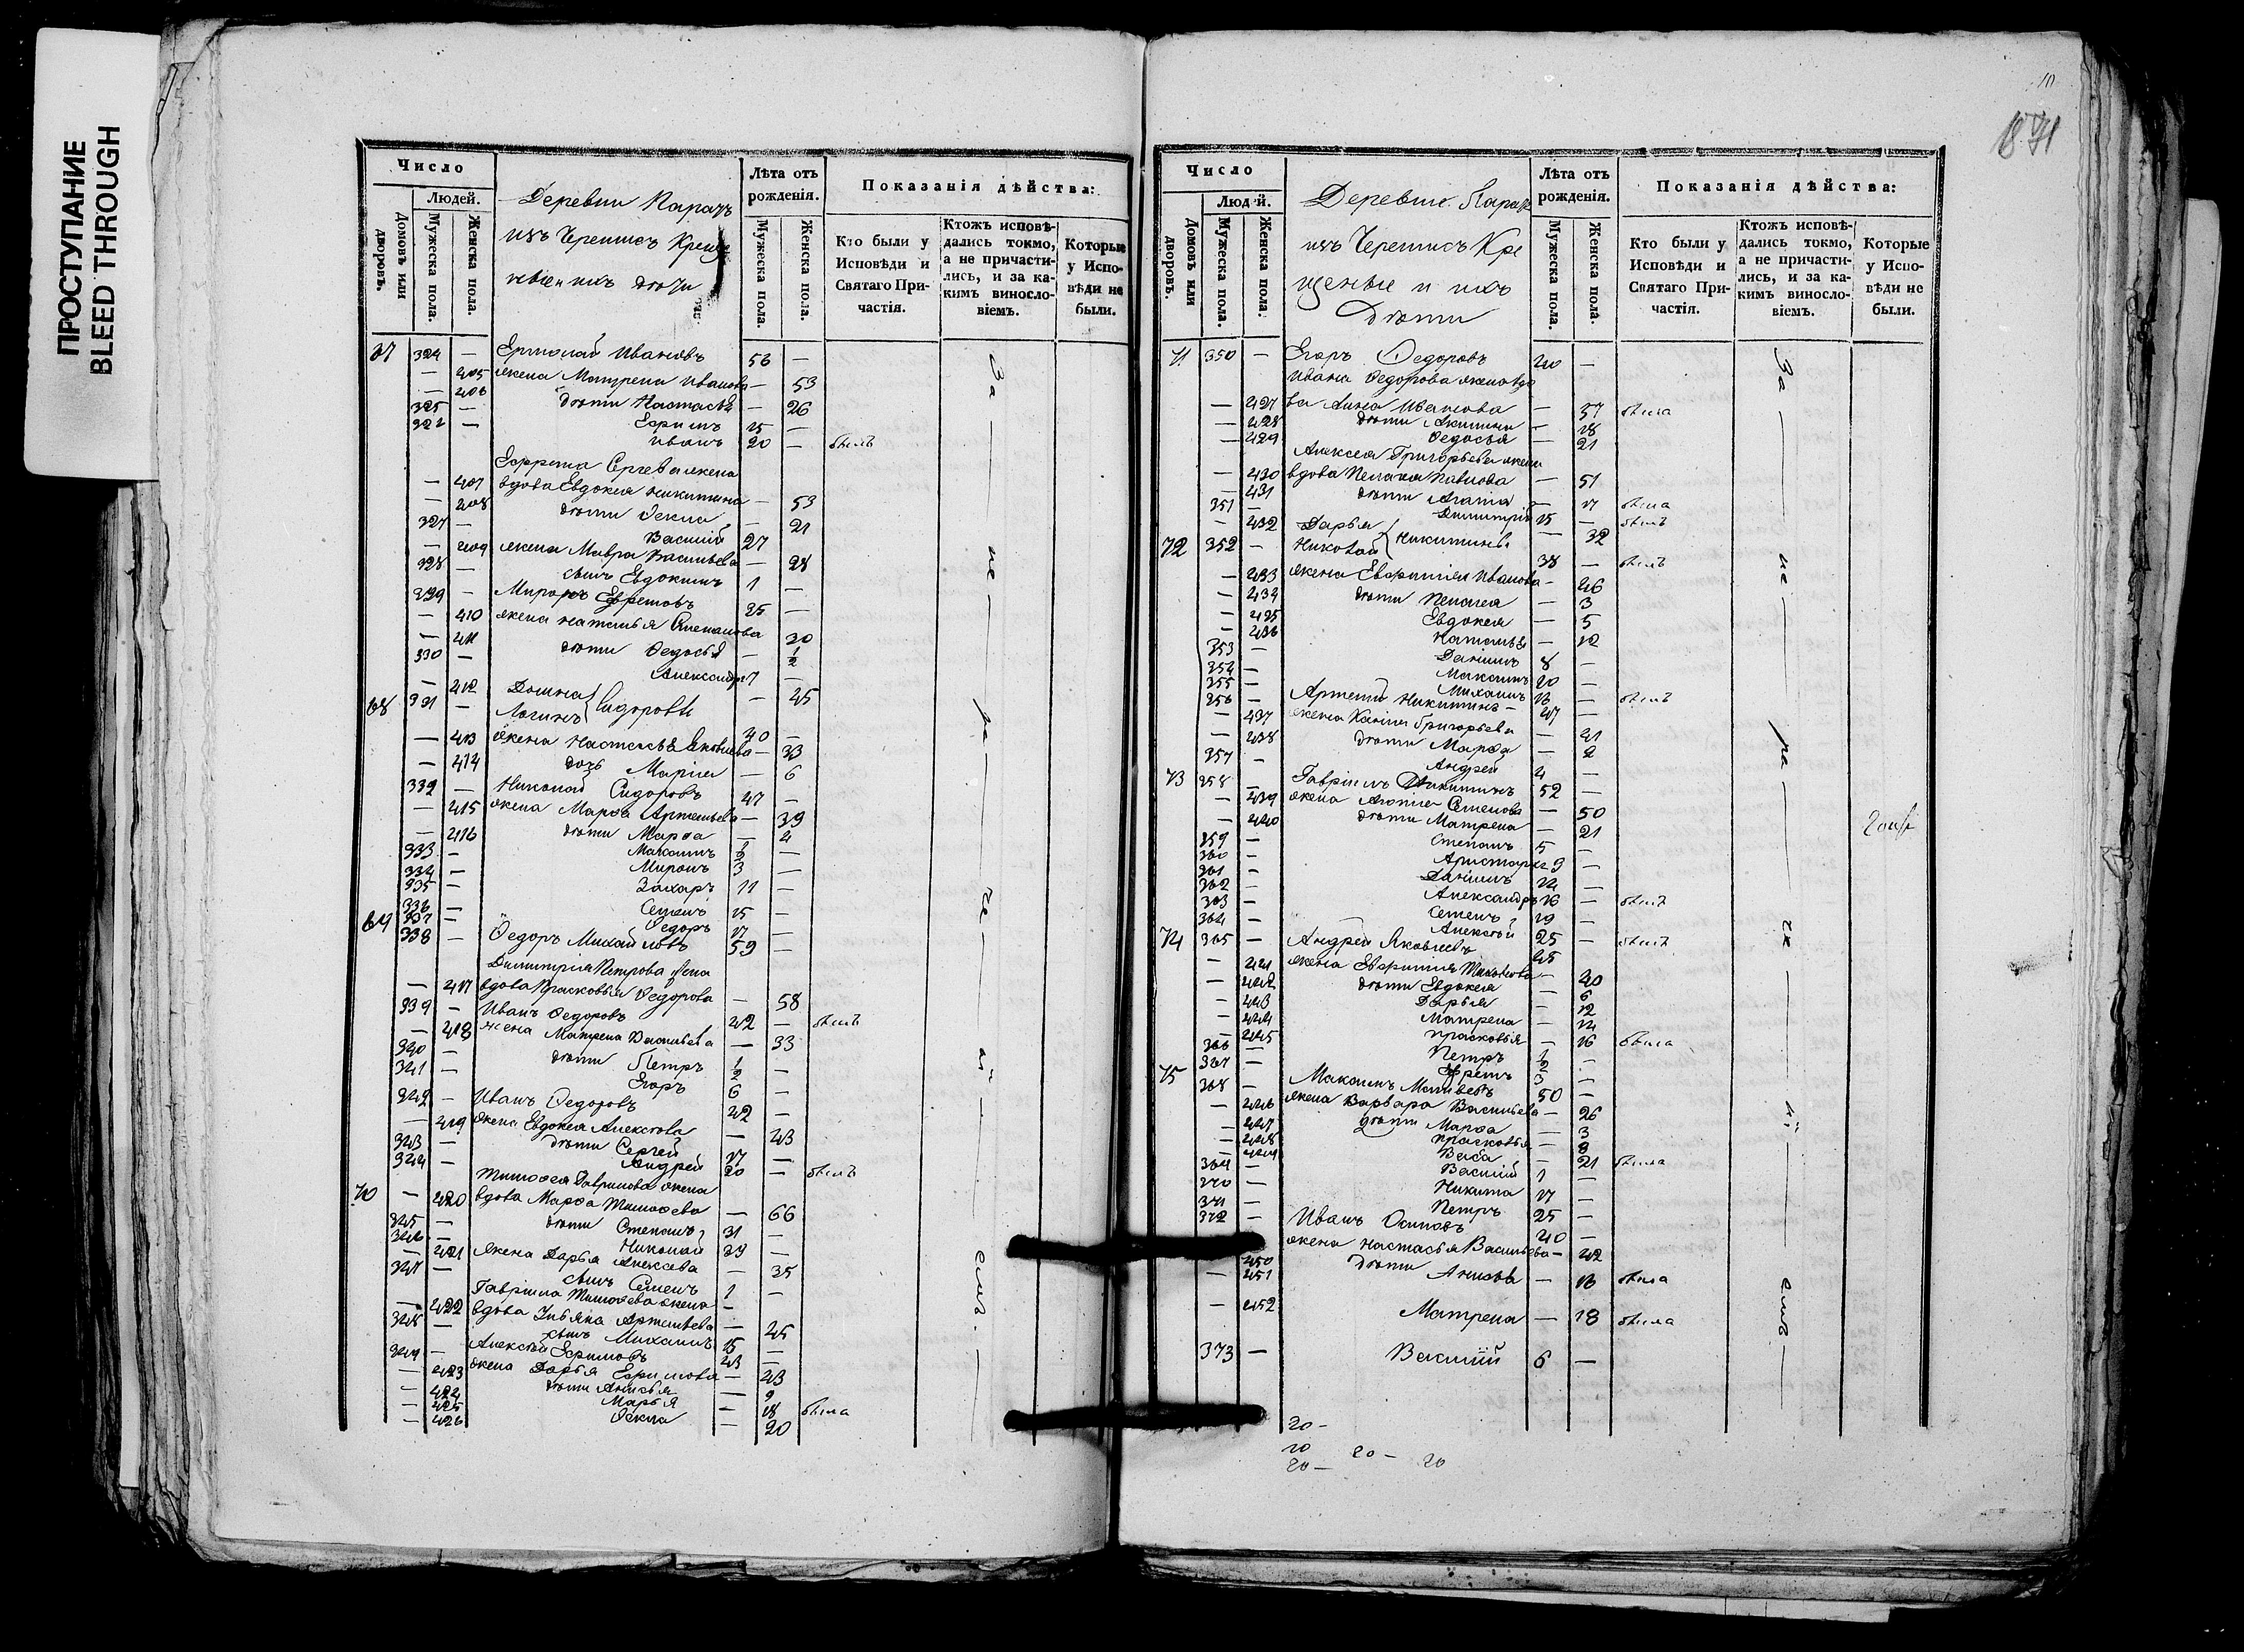 ПРОСТУПАНИЕ
BLEED THROUGH
Число
Людей.
Домовъ или дворовъ.
Мужеска пола.
Женска пола.
Деревни
изъ Черемисъ
Лѣта отъ рожденія.
Мужеска пола.
Женска пола.
Показанія дѣйства:
Кто были у Исповѣди и Святаго Причастія.
Ктожъ исповѣдались токмо, а не причастились, и за какимъ винословіемъ.
Которые у Исповѣди не были.
324 — Ермолай Ивановъ 56 —
— 405 жена Матрена Иванова — 53
— 406 дѣти Настасья — 26
325 — Ефимъ 15 —
Иванъ 20 — былъ
Ефрема Сергеева жена
— 407 вдова Евдокея Никитина — 53
— 408 дѣти Фекла — 21
327 — Василій 27
— 409 жена Мавра Васильева — 28
328 — сынъ Евдокимъ 1 —
329 — Ефремовъ 25 —
— 410 жена Наталья Степанова 30
— 411 дѣти Федосья — 1/2
330 — Александръ 7 —
68 — 412 Домна Сидоровы — 45
331 — Логинъ 40 —
— 413 жена Настасья Яковлева — 33
— 414 дочь Марія — 6
332 — Николай Сидоровъ 47 —
— 415 жена Марфа Артемьева — 39
— 416 дѣти Марфа — 4
333 — Максимъ 1/2 —
334 — Миронъ 3 —
335 — Захаръ 11 —
336 — Семенъ 15 —
337 — Федоръ 17 —
69 338 — Федоръ Михайловъ 59 —
Димитрія Петрова жена
— 417 вдова Прасковья Федорова — 58
339 — Иванъ Федоровъ 42 — былъ
— 418 жена Матрена Васильева — 33
340 — дѣти Петръ 1/2 —
341 — Егоръ 6 —
342 — Иванъ Федоровъ 42 —
— 419 жена Евдокея Алексѣева — 43
343 — дѣти Сергей 17 —
344 — Андрей 20 — былъ
Тимофея Гаврилова жена
70 — 420 вдова Марфа Тимофеева — 66
345 — дѣти Степанъ 31 —
346 — Николай 39 —
— 421 жена Дарья Алексѣева — 35
347 — сынъ Семенъ 1 —
Гавріила Тимофеева жена —
— 422 вдова Ульяна Артемьева — 45
348 — сынъ Михаилъ 15 —
349 — Алексѣй Ефимовъ 43 —
— 423 жена Дарья Ефимова — 43
— 424 дѣти Анисья — 9
— 425 Марья — 18 была
— 426 Фекла — 20
За не ра че ні емъ
Число
Людей.
Домовъ или дворовъ.
Мужеска пола.
Женска пола.
Деревни
изъ Черемисъ Кре
щеные и ихъ
дѣти
Лѣта отъ рожденія.
Мужеска пола.
Женска пола.
Показанія дѣйства:
Кто были у Исповѣди и Святаго Причастія.
Ктожъ исповѣдались токмо, а не причастились, и за какимъ винословіемъ.
Которые у Исповѣди не были.
71 350 — Егоръ Федоровъ 40 —
Ивана Федорова жена вдо
— 427 ва Анна Иванова — 57 была
— 428 дѣти — 18
— 429 Федосья — 21
Алексея Григорьева жена
— 430 вдова Пелагея Павлова — 51
— 431 дѣти Агапія — 17 была
351 — Димитрій 15 — былъ
— 432 Дарья Никитины — 32
72 352 — Николай 38 — былъ
— 433 жена Евфимія Иванова — 46
— 434 дѣти Пелагея — 3
— 435 Евдокея — 5
— 436 Наталья — 12
353 — Даніилъ 8 —
354 — Максимъ 10 —
355 — Михаилъ 18 — былъ
356 — Артемій Никитинъ — 47 —
— 437 жена Григорьева — 41
— 438 дѣти Марфа — 2
357 — Андрей 4 —
73 358 — Гавріилъ Никитинъ 52 —
— 439 жена Семенова — 50
— 440 дѣти Матрена — 21
359 — Степанъ 5 —
360 — Аристархъ 9 —
361 — Даніилъ 14 —
362 — Александръ 16 — былъ
363 — Семенъ 19 —
364 — Алексѣй 25 — былъ
74 365 — Андрей Яковлевъ 45
— 441 жена Евфимія — 40
— 442 дѣти Евдокея — 6
— 443 Дарья — 12
— 444 Матрена — 14
— 445 Прасковья — 16 была
366 — Петръ 1/2 —
367 — Ефремъ 3 —
75 368 — Максимъ Матвеевъ 50 —
— 446 жена Варвара Васильева — 26
— 447 дѣти Марфа — 3
— 448 Прасковья — 8
— 449 — 21 была
369 — Василій 1 —
370 — Никита 17 —
371 — Петръ 25 —
372 — Иванъ Осиповъ 40 —
450 жена Настасья Васильева — 42
— 451 дѣти Анисья — 16 была
— 452 Матрена — 18 была
373 — Василій 6 —
За не ра че ні емъ
20 —
20
20 —
20 —
20